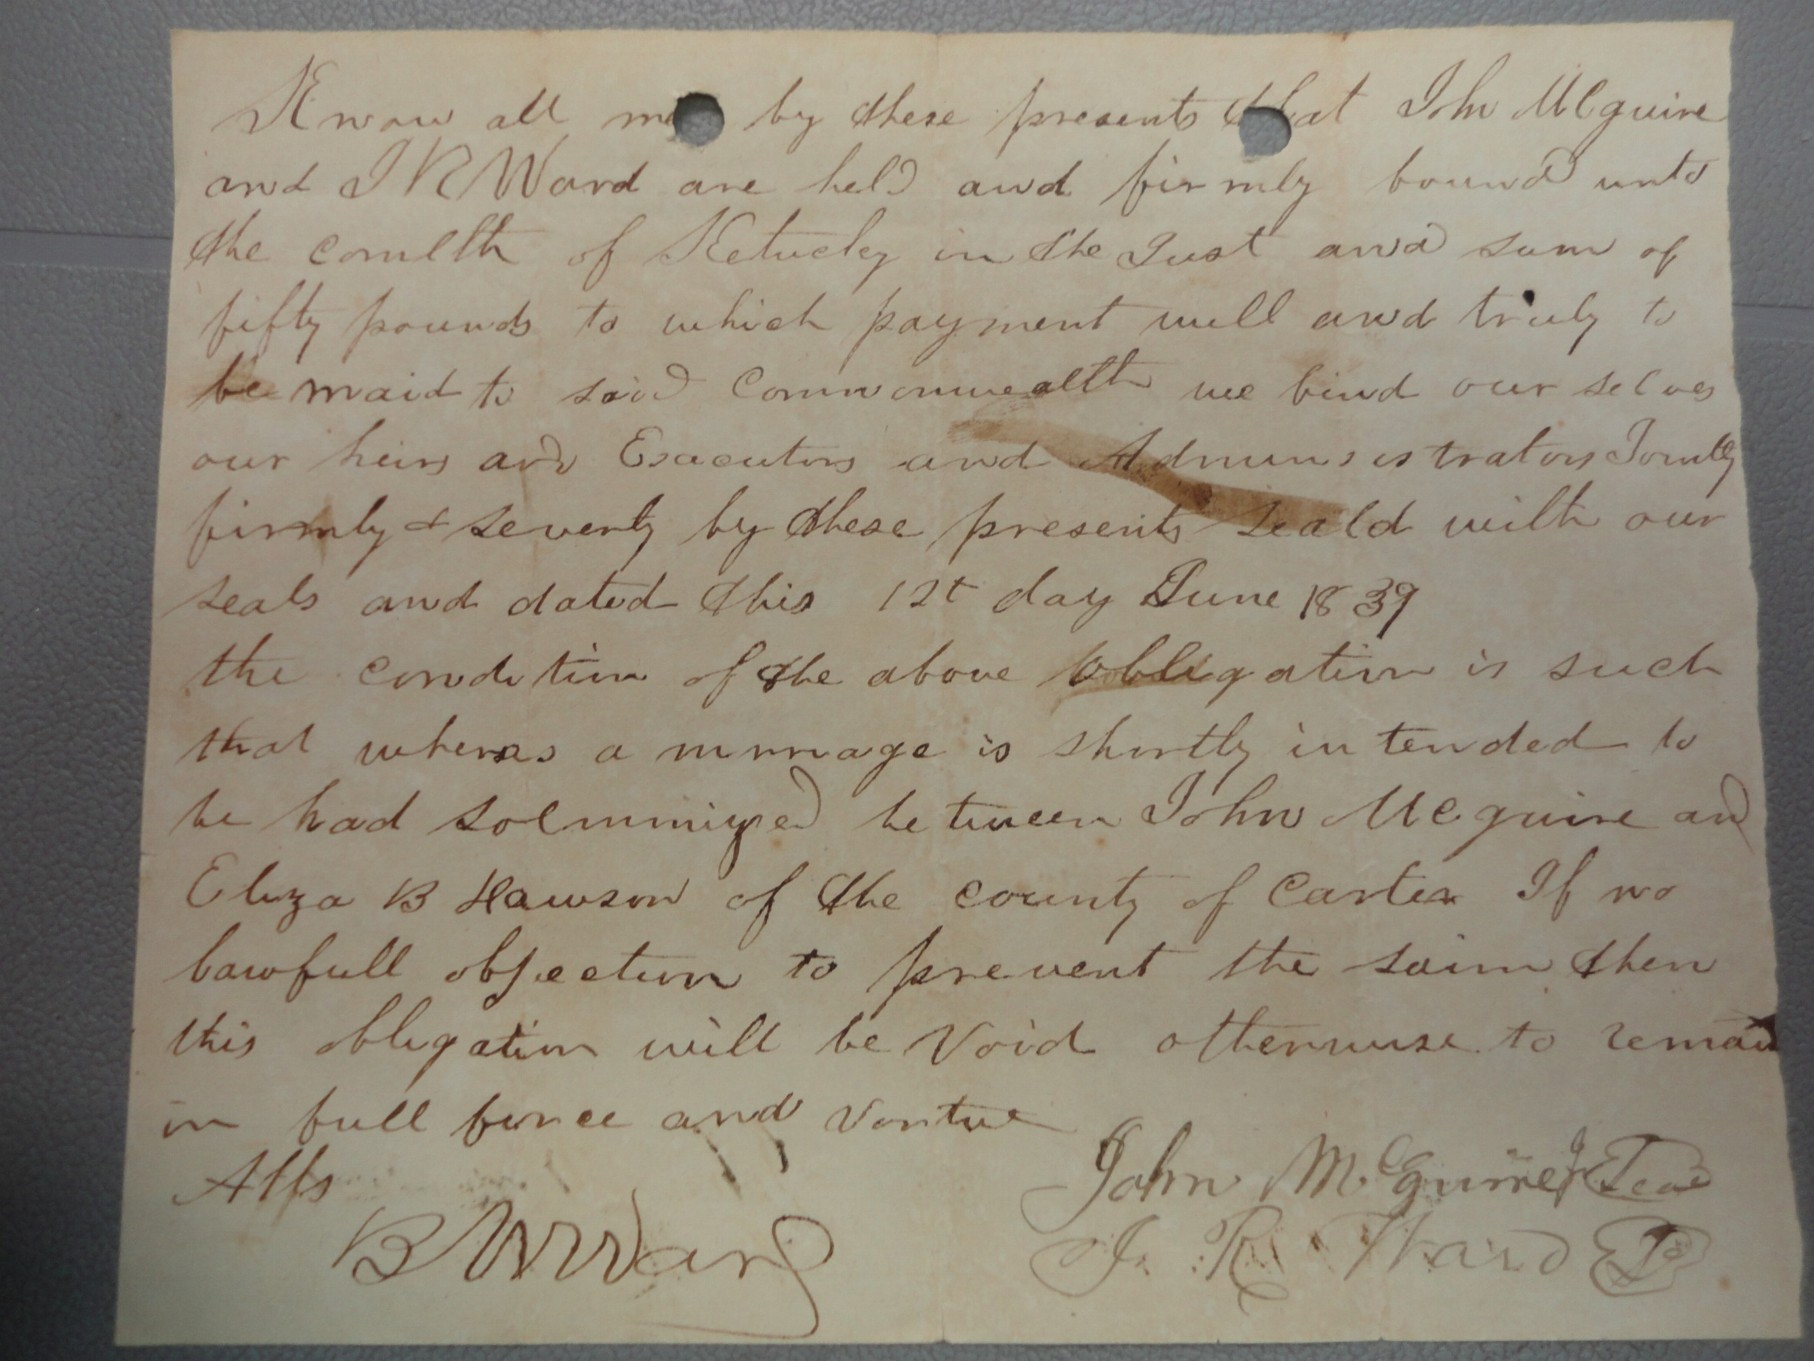 Know all m by these presents that John McGuire
and J R Ward are held and firmly bound unto
the comlth of Ketucky in the Just and sum of
fifty pounds to which payment will and truly to
be maid to said Commonwealth we bind our selves
our heirs and Executors and Administrators Jointly
firmly & severty by these presents seald with our
seals and dated this 1st day June 1839
the condition of the above obligation is such
that wheras a mrriage is shortly intended to
be had solemnized between John McGuire and
Eliza B Hawson of the county of Carter If no
lawfull objection to prevent the saim then
this obligation will be Void otherwise to remain
in full force and vortue
Atts
John McGuire Jr Seal
B W Ward
J. R. Ward